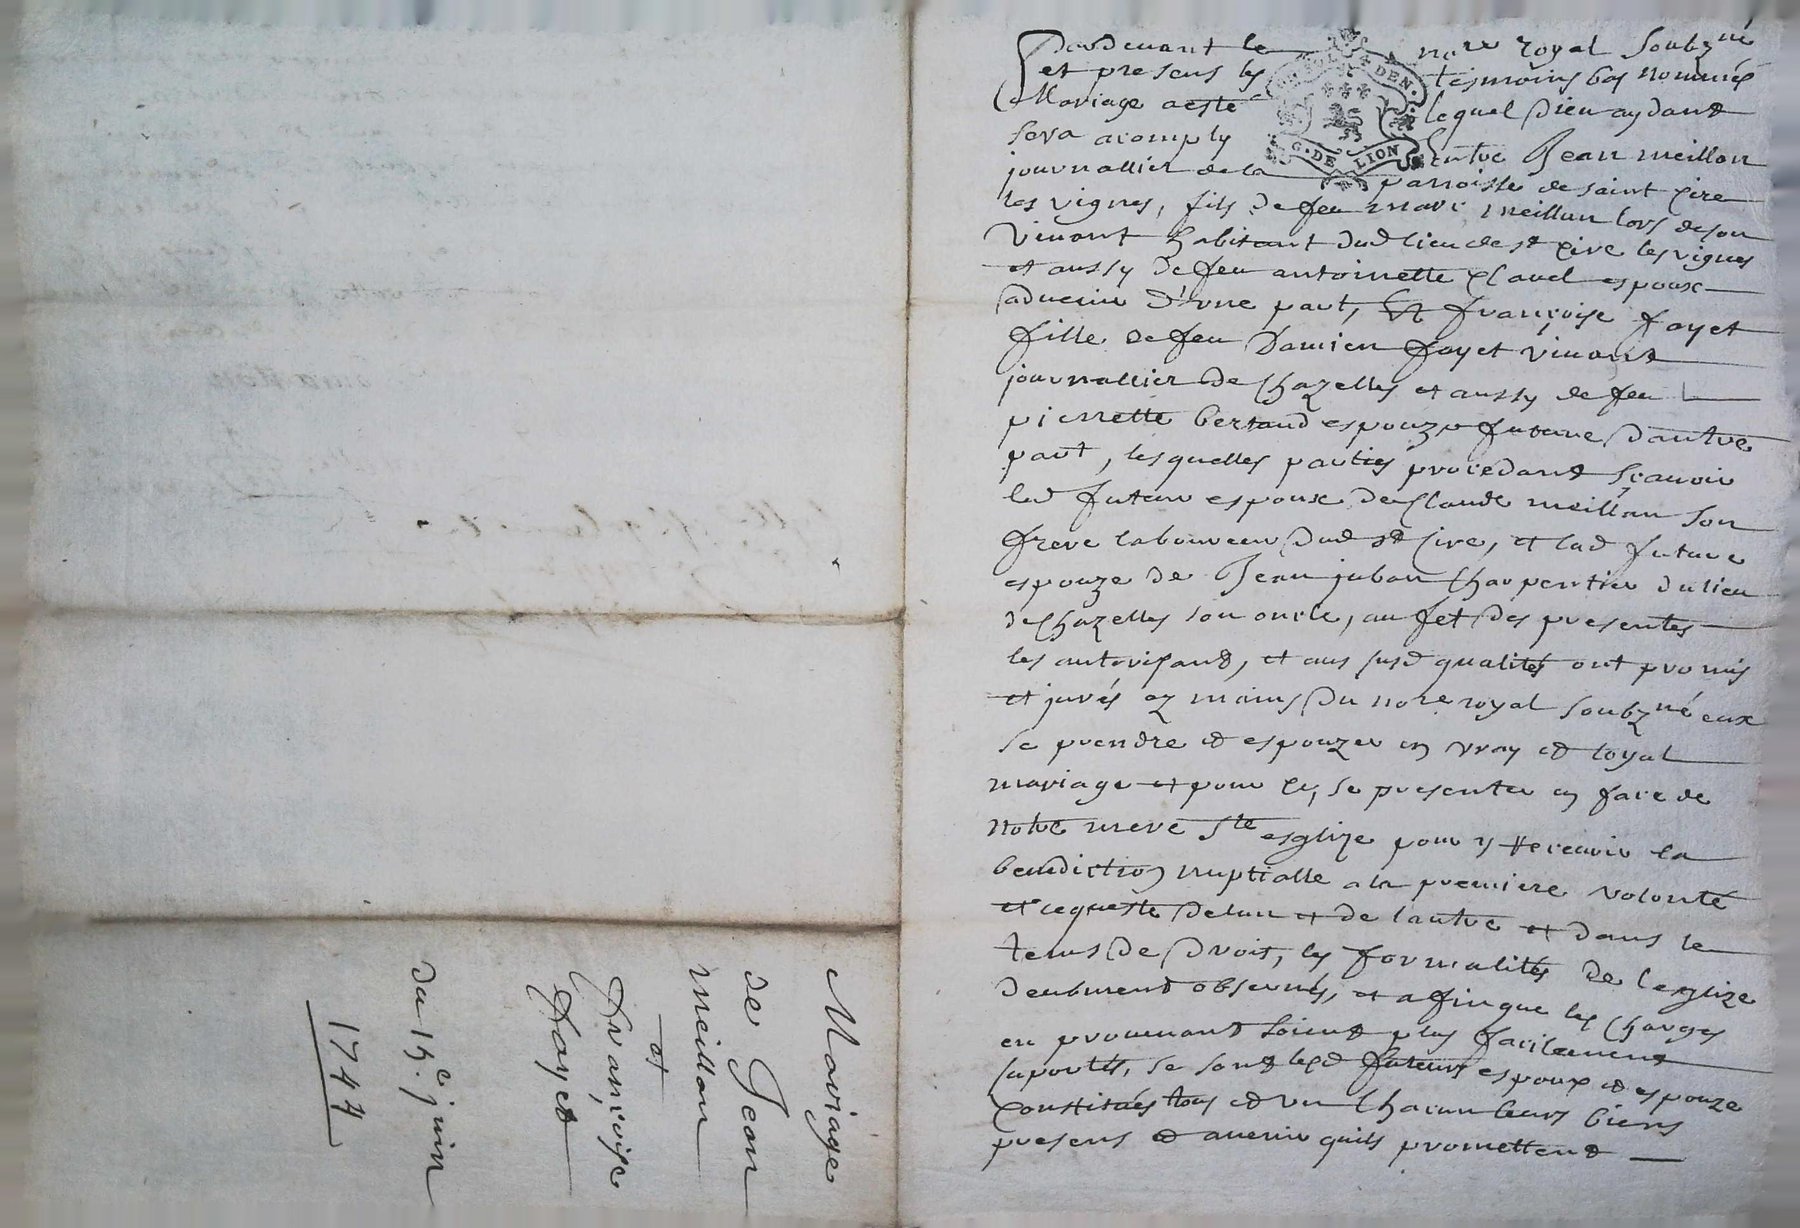 Mariage
de Jean
meillon
et
Françoise
Fayet
du 15.e juin
1744
Pardevant le nore royal soubzné
et presens les tesmoins bas nommés
Mariage a esté lequel Dieu aydant
sera acomply entre Jean meillon
journallier de la parroisse de saint cire
les vignes, fils de feu marc meillan lors de son
vivant habitant dud lieu de st cire les vignes
et aussy de feu antoinette clavel espoux
advenir d'vne part, Et françoise fayet
fille de feu Damien fayet vivant
journallier de Chazelles et aussy de feu
pierrette bertaud espouze future d'autre
part, lesquelles parties procedant scavoir
led futeur espoux de Claude meillan son
frere laboureur dud st Cire, et lad future
espouze de Jean juban Charpentier du lieu
de Chazelles son oncle, au fet des presentes
les autorisant, et aus susd qualités ont promis
et jurés ez mains du nore royal soubzné eux
se prendre et espouzer en vray et loyal
mariage et pour ce, se presenter en face de
notre mere Ste esglize pour y recevoir la
benediction nuptialle a la premiere volonté
et requeste de lun et de lautre et dans le
tems de droit, les formalités de lesglize
deubment observés, et afin que les charges
en provenant soient plus facilement
suportés, se sont lesd futeurs espoux et espouze
constitués tous et vn chacun leurs biens
presens et avenir quils promettent
G. DE LION